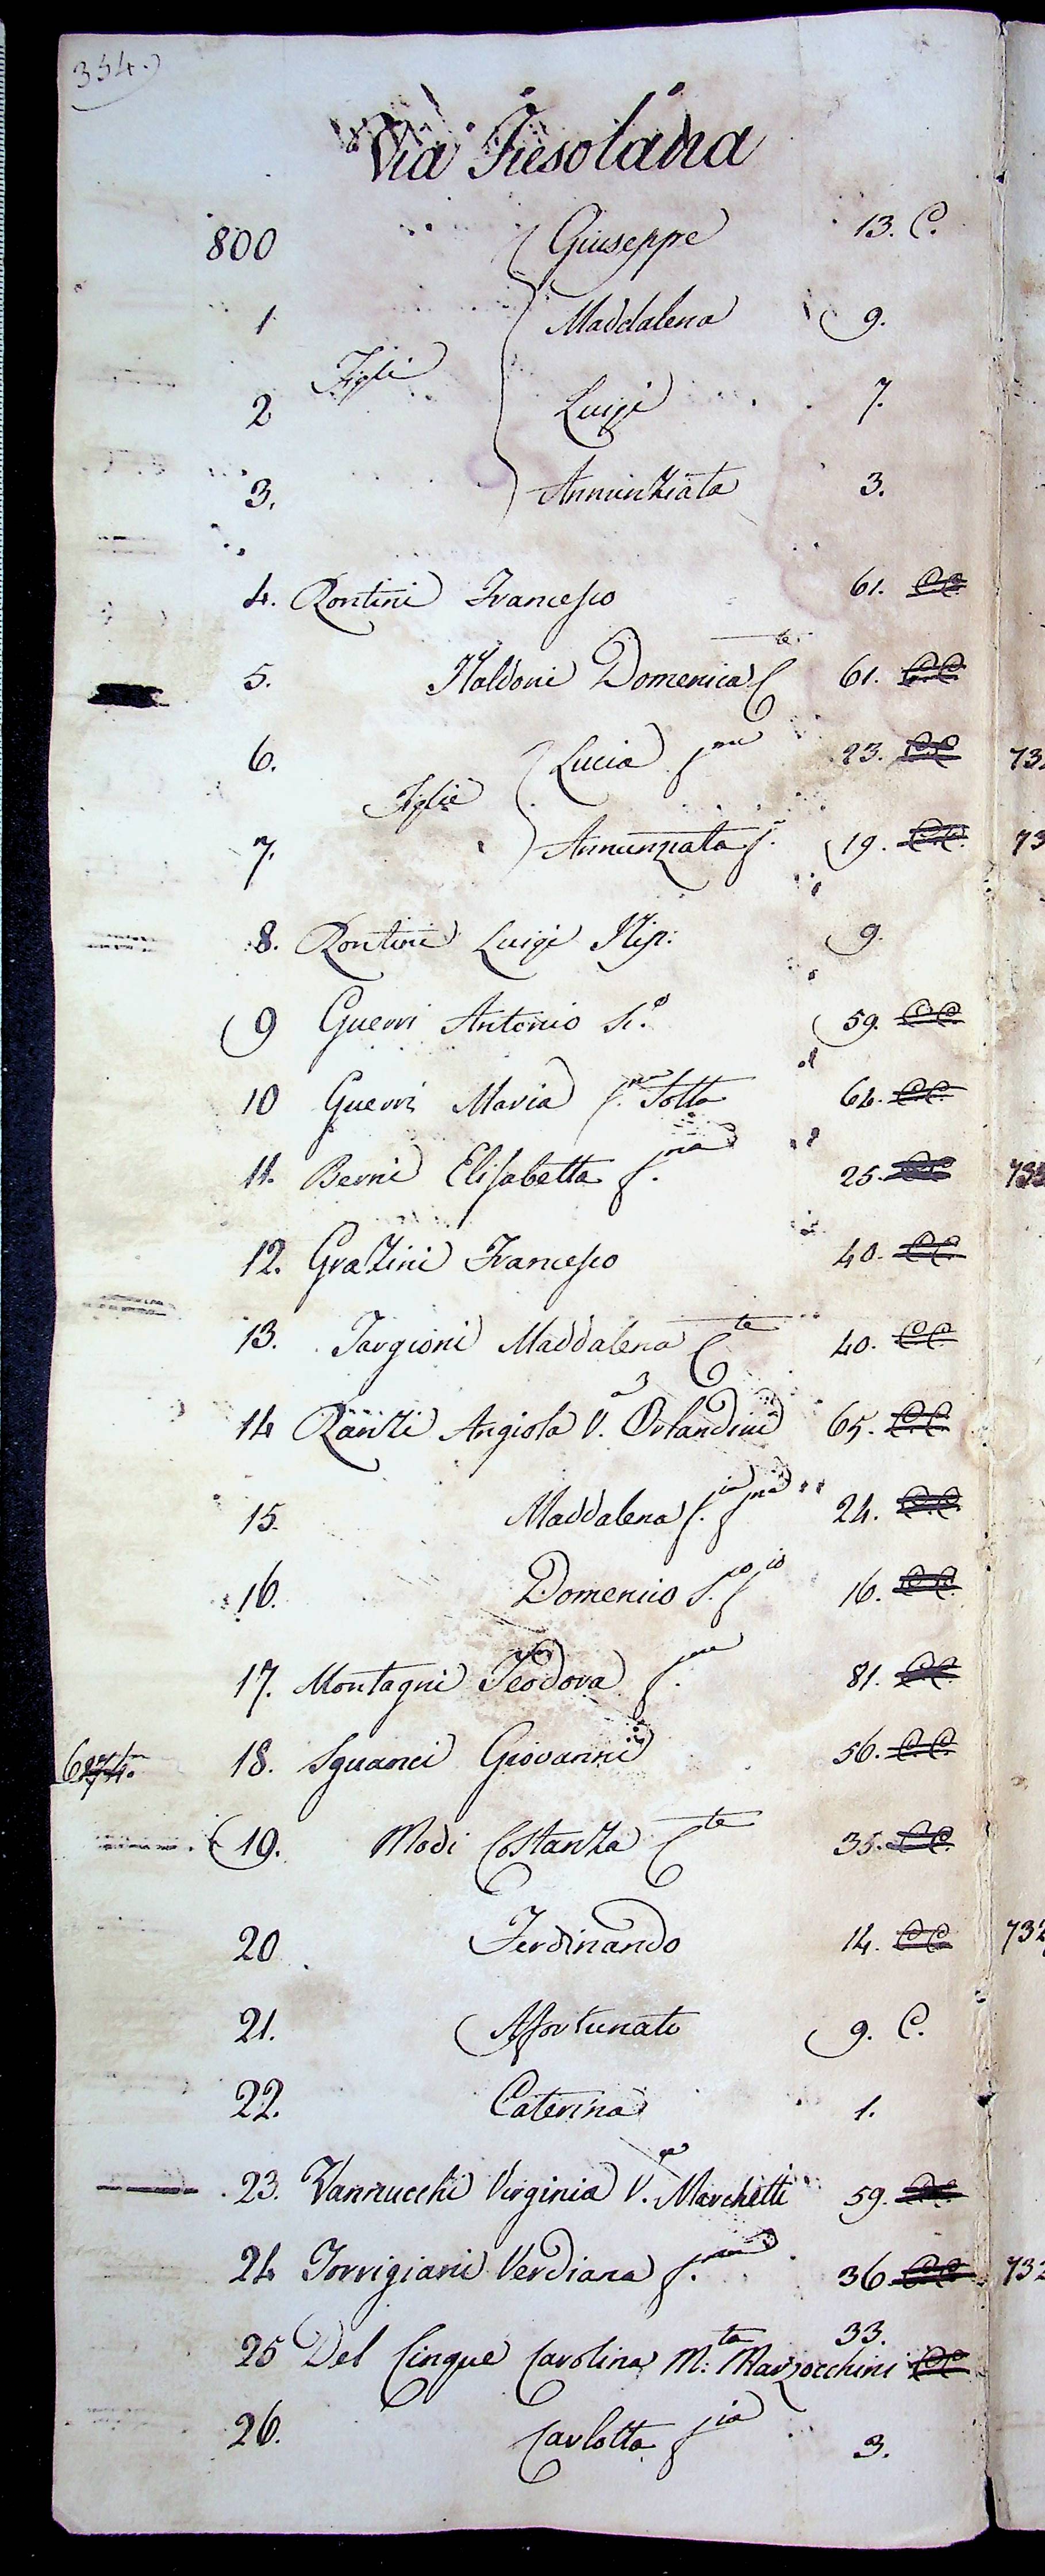 354.
Via Fiesolana
800 Giuseppe 13. C.
1 Maddalena 9.
Figli
2 Luigi 7.
3. Annunziata 3.
4. Rontini Francesco 61. CC
5. Naldoni Domenica C.te 61. CC
6. Lucia f.na 23. CC
Figlie
7. Annunziata f. 19. CC
8. Rontini Luigi Nip: 9.
9 Guerri Antonio S.o 59. CC
10 Guerri Maria Sotto 64. CC
11. Berni Elisabetta f.na 25. CC
12. Grazini Francesco 40. CC
13. Targioni Maddalena C.te 40. CC
14 Ranzi Angiola V.a Orlandini 65. CC
15. Maddalena f.ia f.na 24. CC
16. Domenico 16. CC
17. Montagni Teodora f.na 81. CC
18. Sguanci Giovanni 56. CC
19. Modi Costanza C.te 35. CC
20 Ferdinando 14. CC
21. Affortunato 9. C.
22. Caterina 1.
23. Vannucchi Virginia V.a Marchetti 59. CC
24 Torrigiani Verdiana f.na 36 CC
33.
25 Del Cinque Carolina M.ta Marzocchini CC
26. Carlotta f.ia 3.